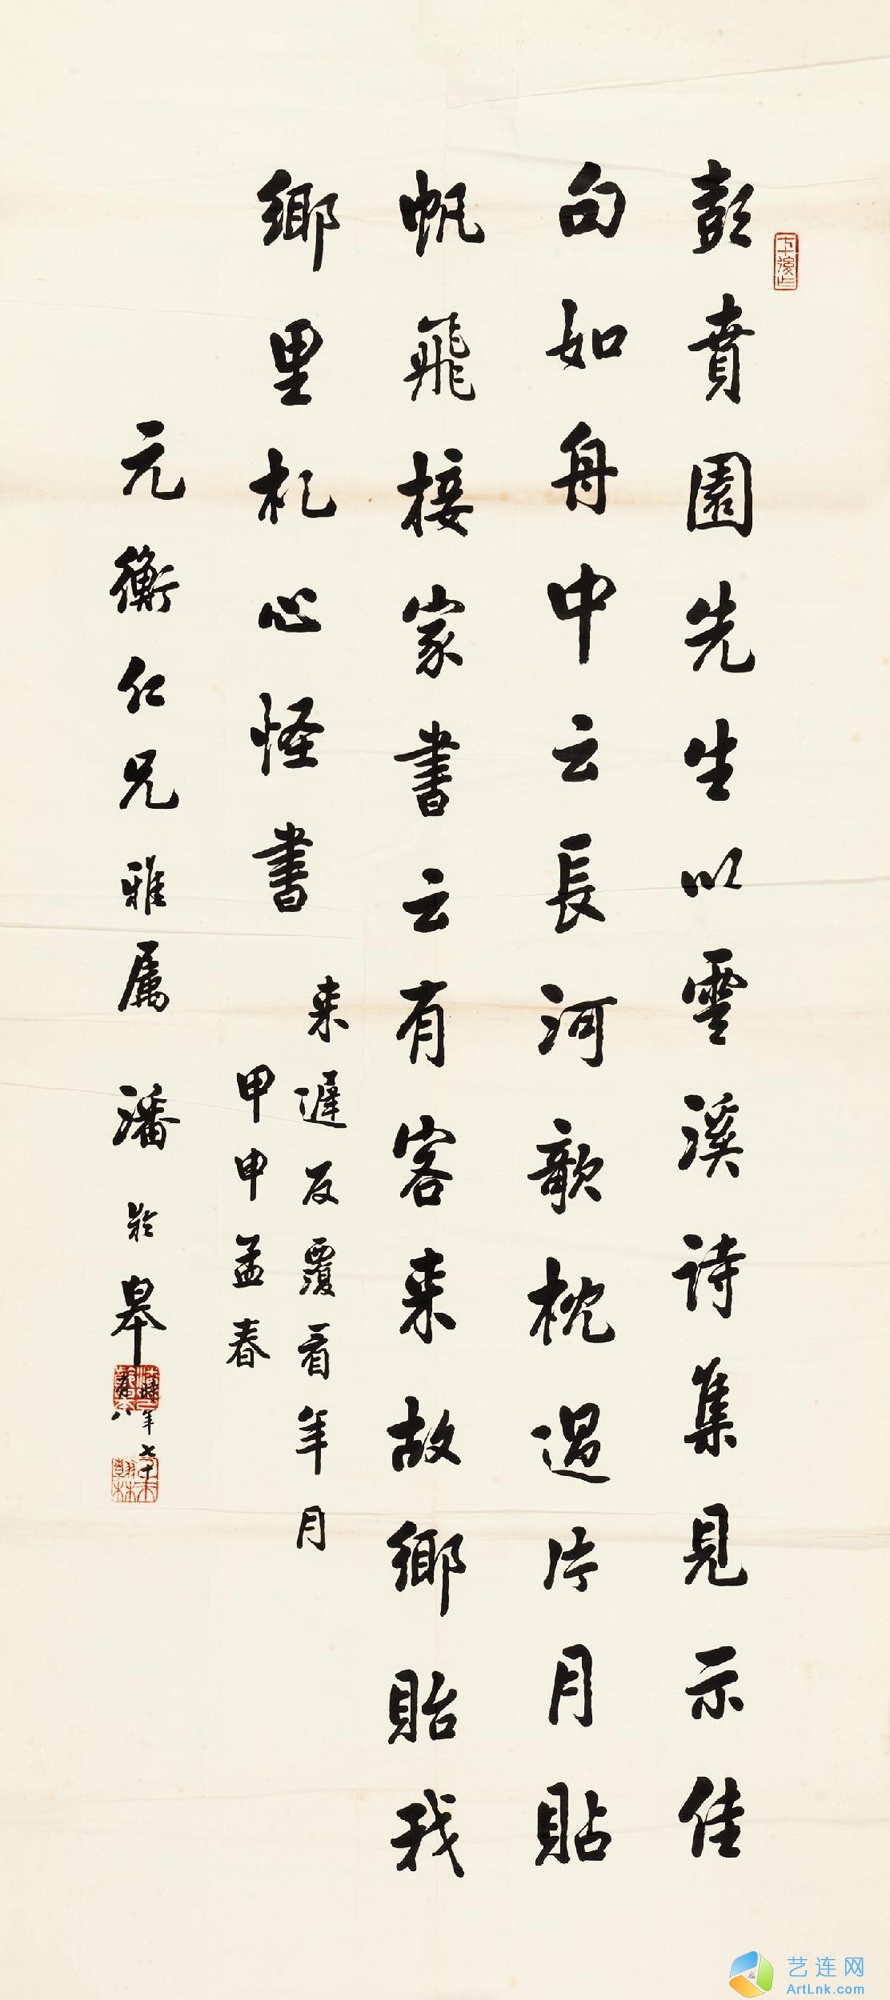 彭賁園先生以雲溪詩集見示佳
句如舟中云長河歌枕過片月貼
帆飛接家書云有客来故鄉貽我
鄉里札心怪書
来遲反覆看年月
甲申孟春
元衡仁兄雅属 潘齡皋
時年七十有八
艺连网
ArtLnk.com